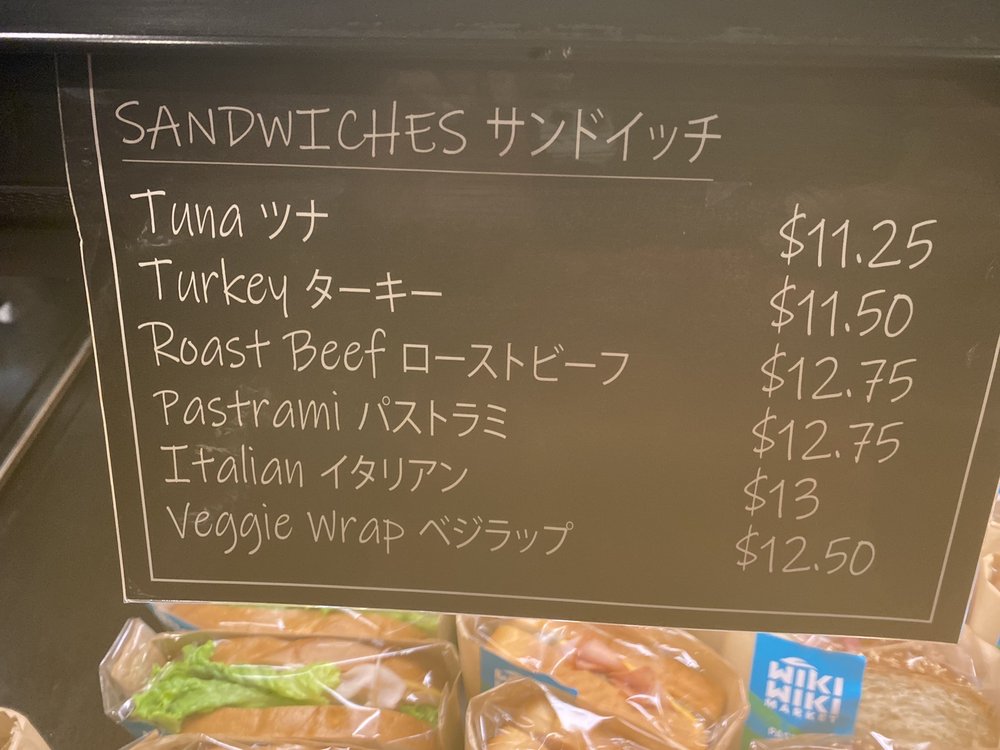 SANDWICHES サンドイッチ
Tuna ツナ $11.25
Turkey ターキー $11.50
Roast Beef ローストビーフ $12.75
Pastrami パストラミ $12.75
Italian イタリアン $13
Veggie Wrap ベジラップ $12.50
WIKI
WIKI
MARKET